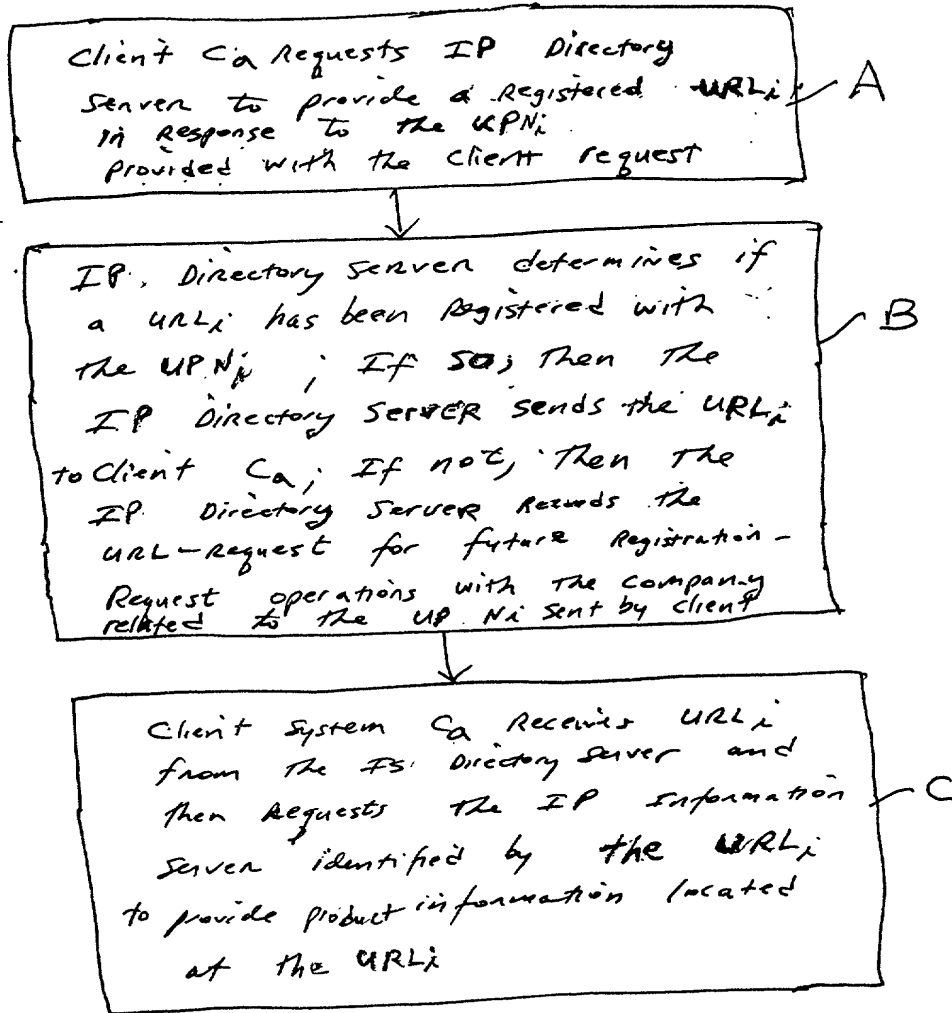 Client Ca Requests IP Directory
Server to provide a Registered URLi
in Response to the UPNi
provided with the client request
A
IP. Directory Server determines if
a URLi has been Registered with
the UPNi ; If so; then the
IP Directory Server sends the URLi
to Client Ca; If not, then the
IP Directory Server Records the
URL-Request for future Registration-
Request operations with the company
related to the UPNi sent by client
B
Client System Ca Receives URLi
from the IS Directory Server and
then Requests the IP Information
Server identified by the URLi
to provide product information located
at the URLi
C